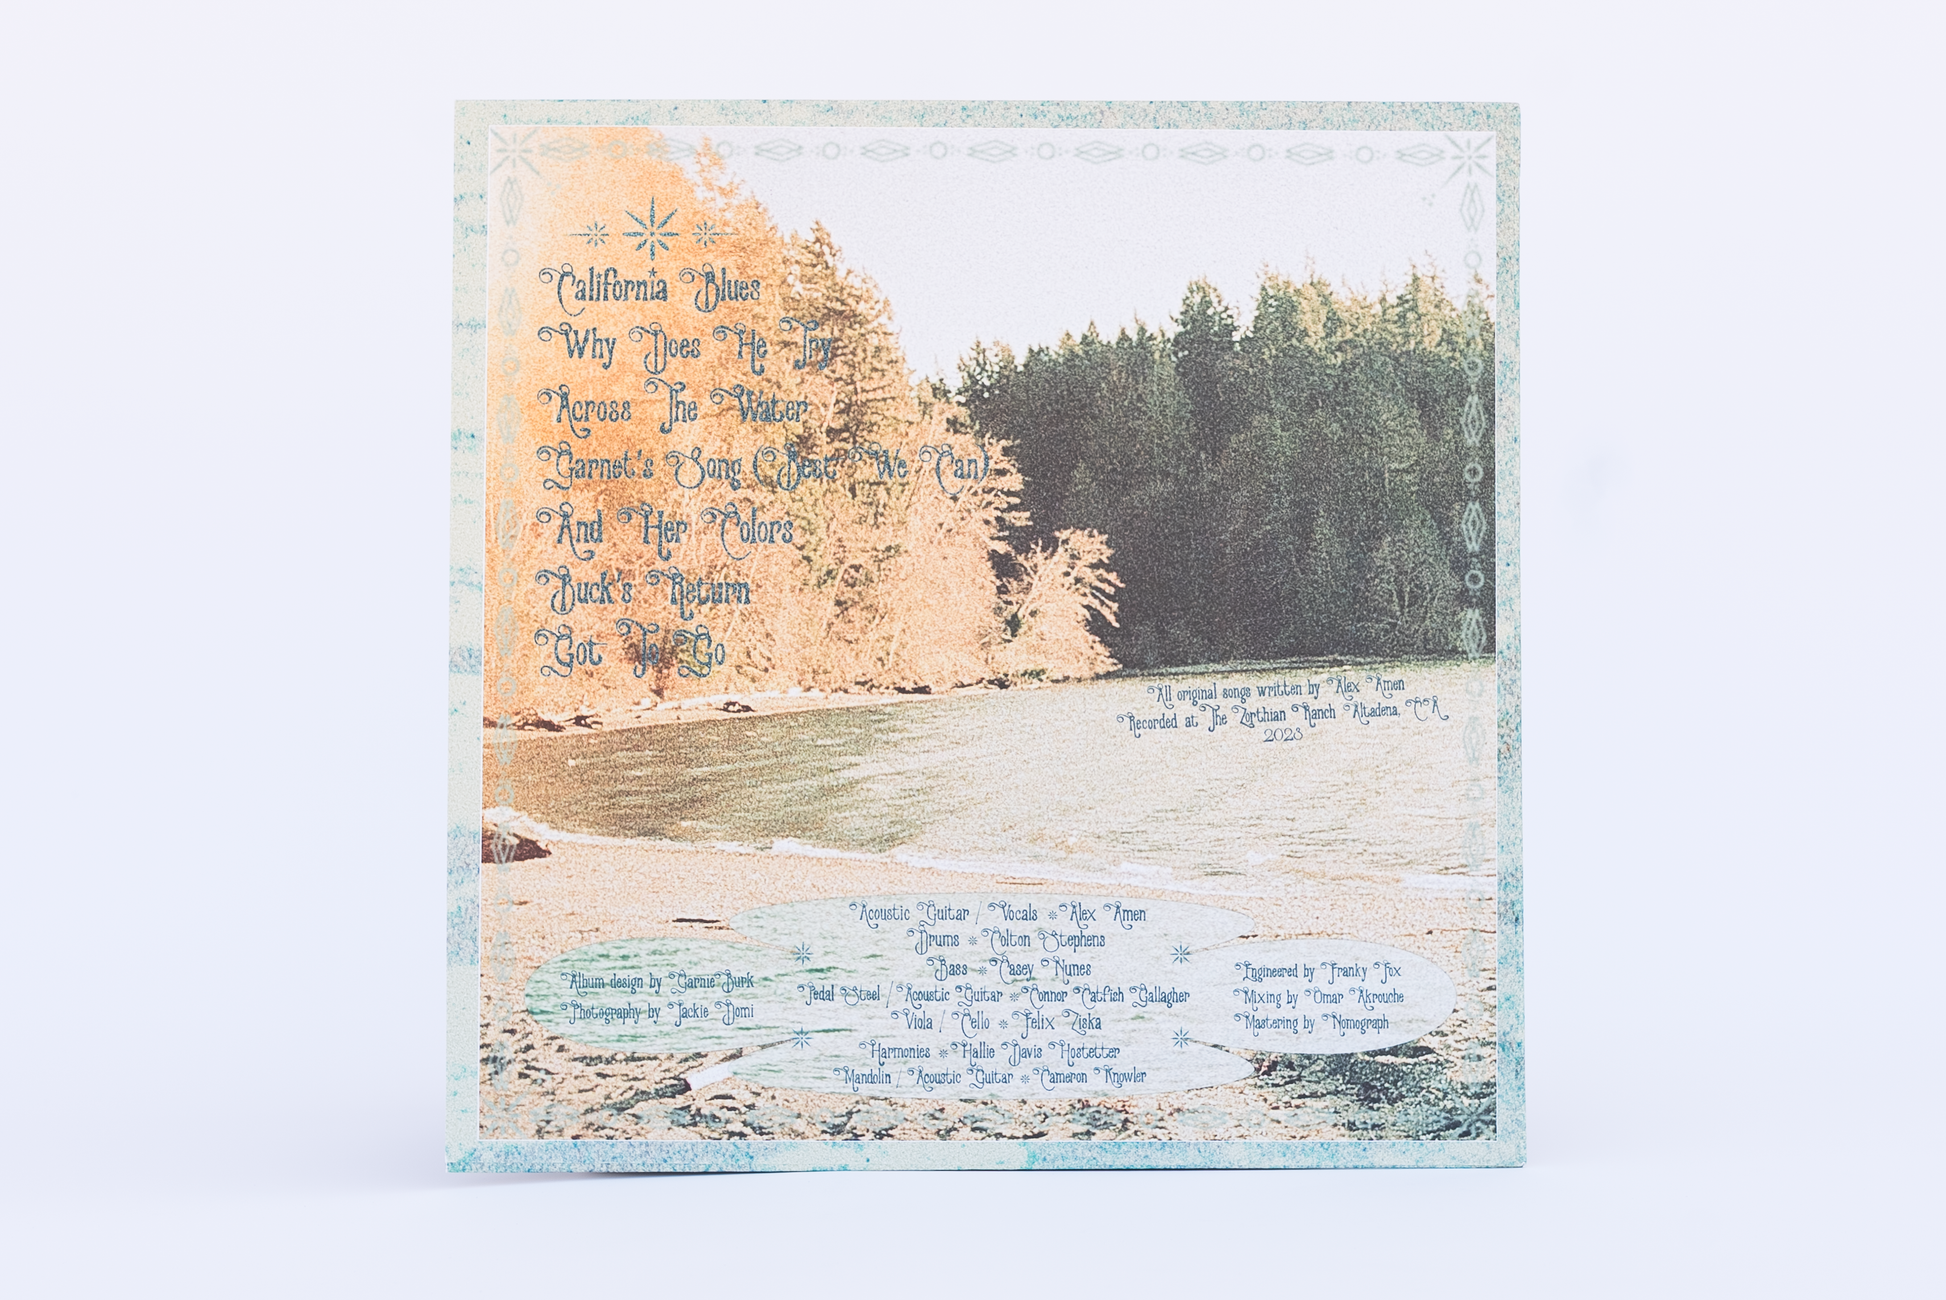 California Blues
Why Does He Try
Across The Water
Garnet's Song (Best We Can)
And Her Colors
Buck's Return
Got To Go
All original songs written by Alex Amen
Recorded at The Zorthian Ranch Altadena, CA
2023
Acoustic Guitar / Vocals * Alex Amen
Drums * Colton Stephens
Bass * Casey Nunes
Pedal Steel / Acoustic Guitar * Connor Catfish Gallagher
Viola / Cello * Felix Ziska
Harmonies * Hallie Davis Hostetter
Mandolin / Acoustic Guitar * Cameron Knowler
Album design by Garnie Burk
Photography by Jackie Domi
Engineered by Franky Fox
Mixing by Omar Akrouche
Mastering by Nomograph